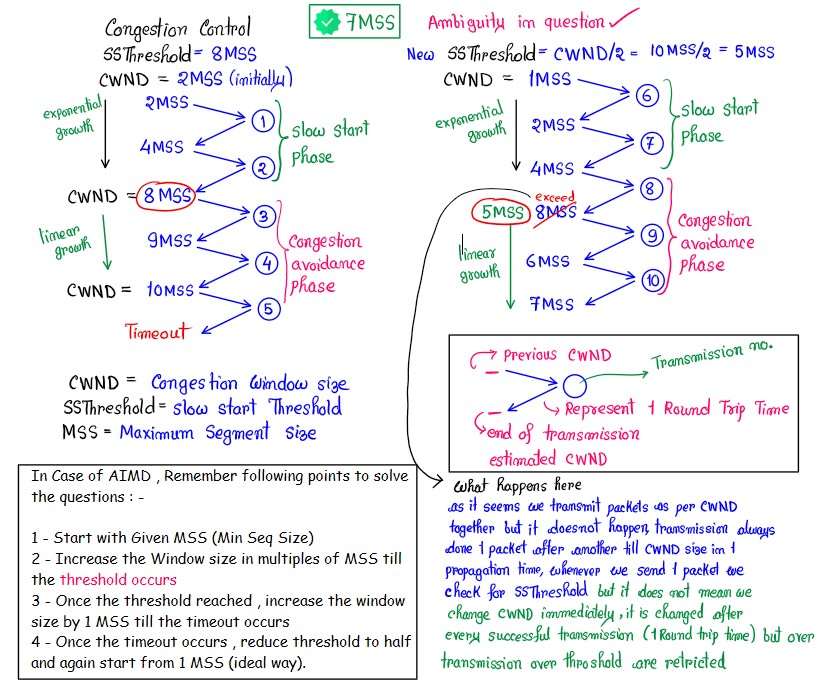 7MSS
Congestion Control
SSThreshold = 8MSS
CWND = 2MSS (initially)
exponential
growth
2MSS
1
4MSS
2
slow start
phase
CWND = 8MSS
3
linear
growth
9MSS
4
Congestion
avoidance
phase
CWND = 10MSS
5
Timeout
CWND = Congestion Window size
SSThreshold = slow start Threshold
MSS = Maximum Segment Size
In Case of AIMD , Remember following points to solve
the questions : -
1 - Start with Given MSS (Min Seq Size)
2 - Increase the Window size in multiples of MSS till
the threshold occurs
3 - Once the threshold reached , increase the window
size by 1 MSS till the timeout occurs
4 - Once the timeout occurs , reduce threshold to half
and again start from 1 MSS (ideal way).
Ambiguity in question ✓
New SSThreshold = CWND/2 = 10MSS/2 = 5MSS
CWND = 1MSS
6
exponential
growth
2MSS
7
slow start
phase
4MSS
8
exceed
5MSS 8MSS
9
linear
growth
6MSS
10
Congestion
avoidance
phase
7MSS
Previous CWND
Transmission no.
Represent 1 Round Trip Time
end of transmission
estimated CWND
What happens here
as it seems we transmit packets as per CWND
together but it doesnot happen, transmission always
done 1 packet after another till CWND size in 1
propagation time, whenever we send 1 packet we
check for SSThreshold but it does not mean we
change CWND immediately, it is changed after
every successful transmission (1 Round trip time) but over
transmission over throshold are retricted